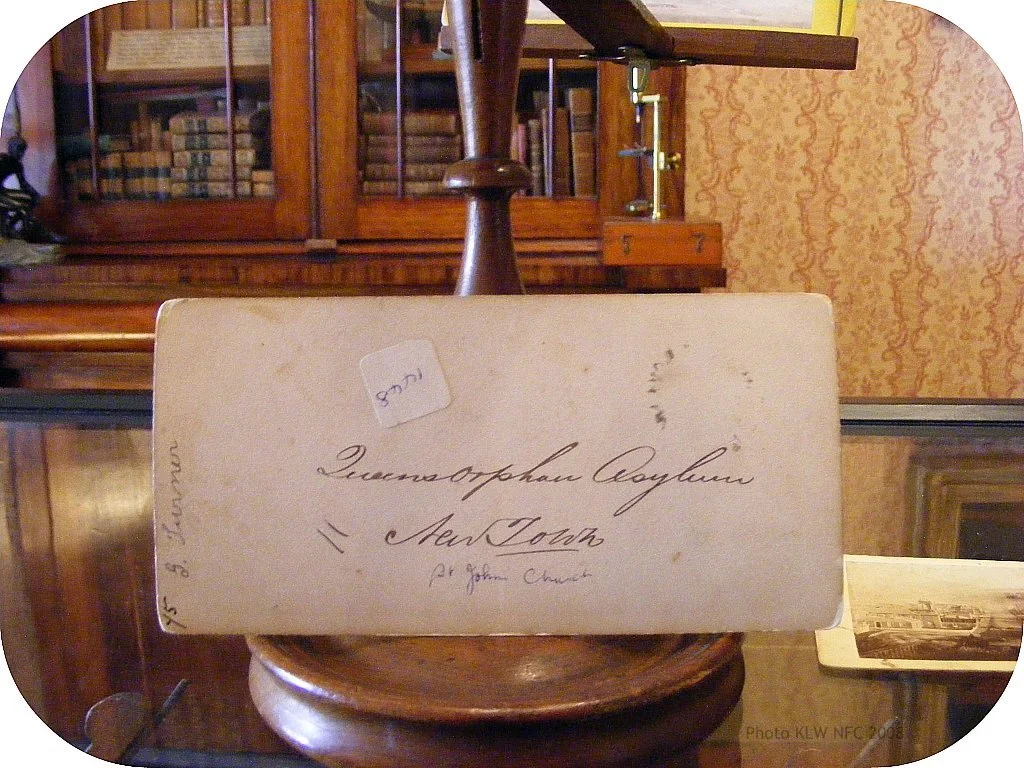 Queens Orphan Asylum
New Town
St Johns Church
Turner
Photo KLW NFC 2008